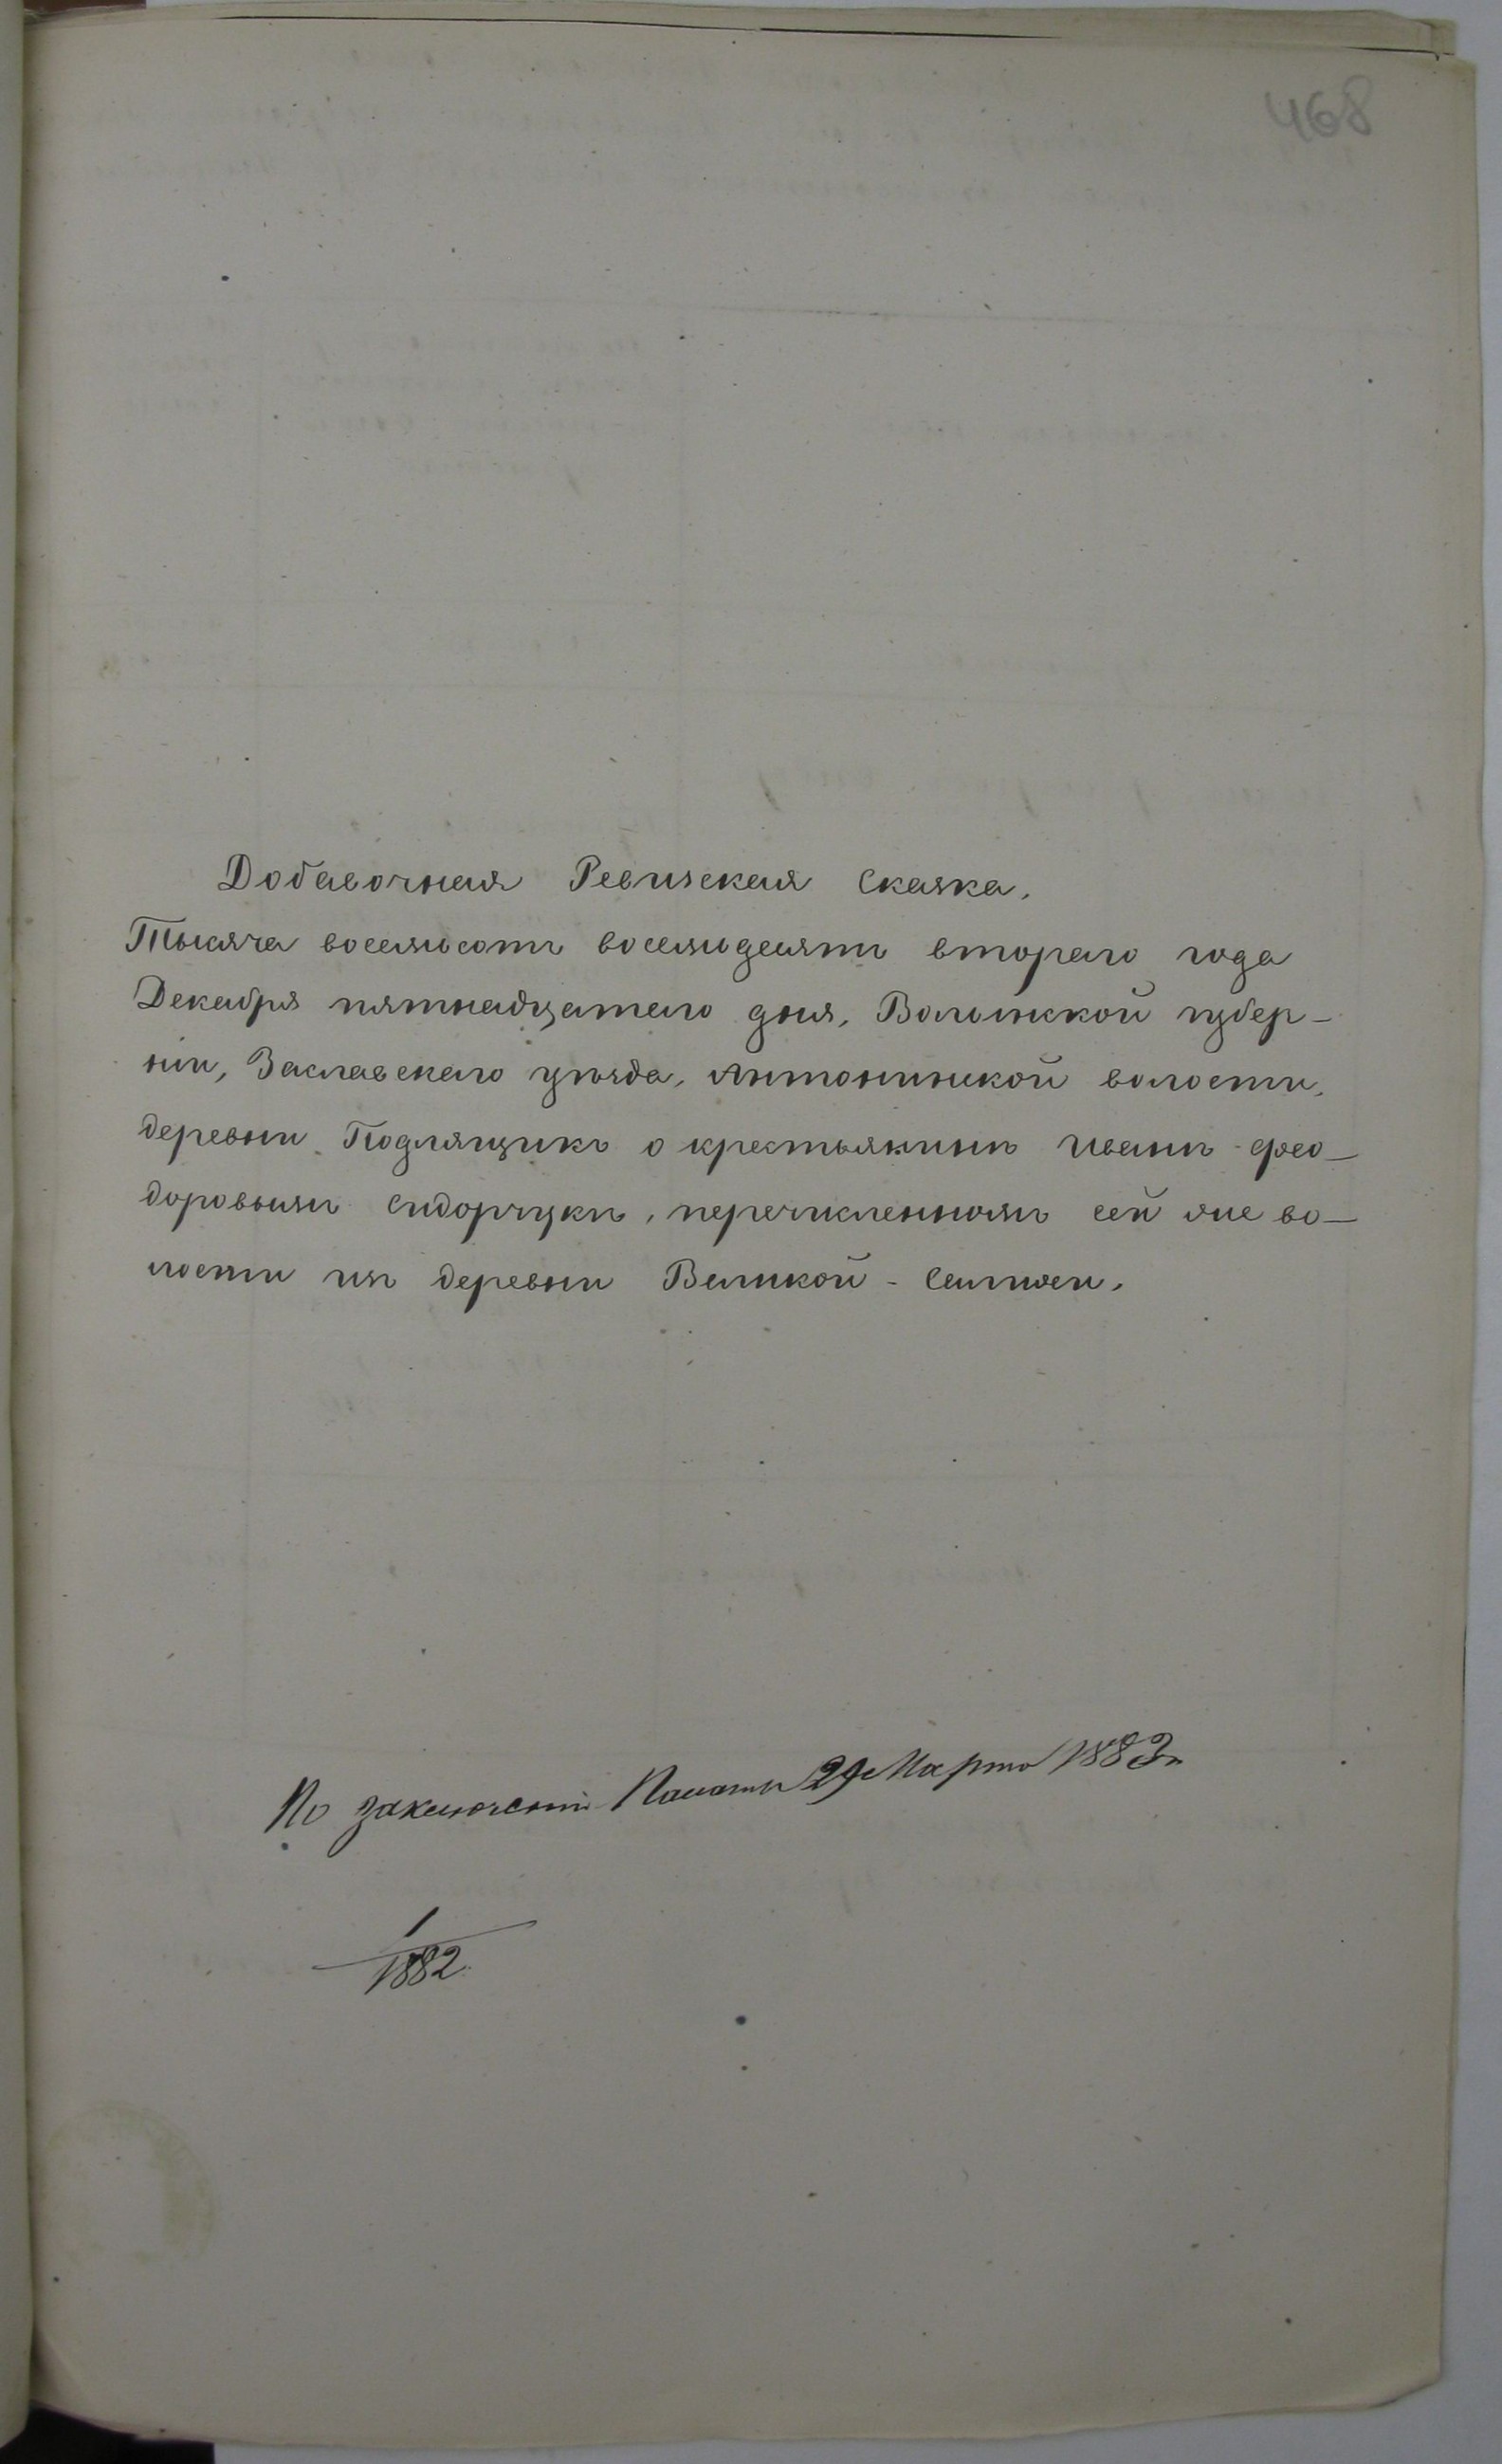 468
Добавочная Ревизская Сказка.
Тысяча восемьсотъ восемьдесятъ втораго года
Декабря пятнадцатаго дня, Волынской губер-
ніи, Заславскаго уѣзда, Антонинской волости,
деревни Подлящикъ о крестьянинѣ Иванѣ Ѳео-
доровымъ Сидорчукѣ, перечисленномъ сей же во-
лости изъ деревни Великой-Салихи.
По заключенію Палаты 29 Марта 1883 г.
1
1882